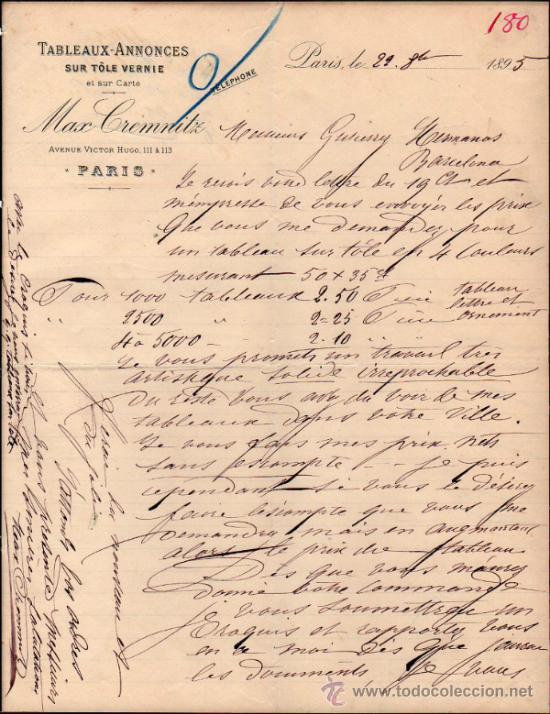 180
TABLEAUX-ANNONCES
SUR TÔLE VERNIE
et sur Carte
TÉLÉPHONE
Paris, le 22 8bre 1895
Max Crémnitz
AVENUE VICTOR HUGO, 111 & 113
PARIS
Messieurs Hermanos
Barcelona
Je reçois votre lettre du 19 Ct et
m'empresse de vous envoyer les prix
que vous me demandez pour
un tableau sur tôle en 4 couleurs
mesurant 50 x 35
Pour 1000 tableaux 2.50 pièce
" 2500 " 2-25 pièce
4 à 5000 - 2-10 "
tableau
lettre et
ornement
Je vous promets un travail très
artistique solide irréprochable
Du reste vous avez du voir de mes
tableaux dans votre Ville.
Je vous fais mes prix nets
sans escompte -- je puis
cependant si vous le désirez
faire l'escompte que vous me
demandez mais en augmentant
alors le prix du tableau
Dès que vous m'aurez
donné votre commande
je vous soumettrai un
croquis et
en mois dès que j'aurai
les documents Je vous
du nouveau et
du joli
Messieurs
mes salutations
Max Crémnitz
www.todocoleccion.net